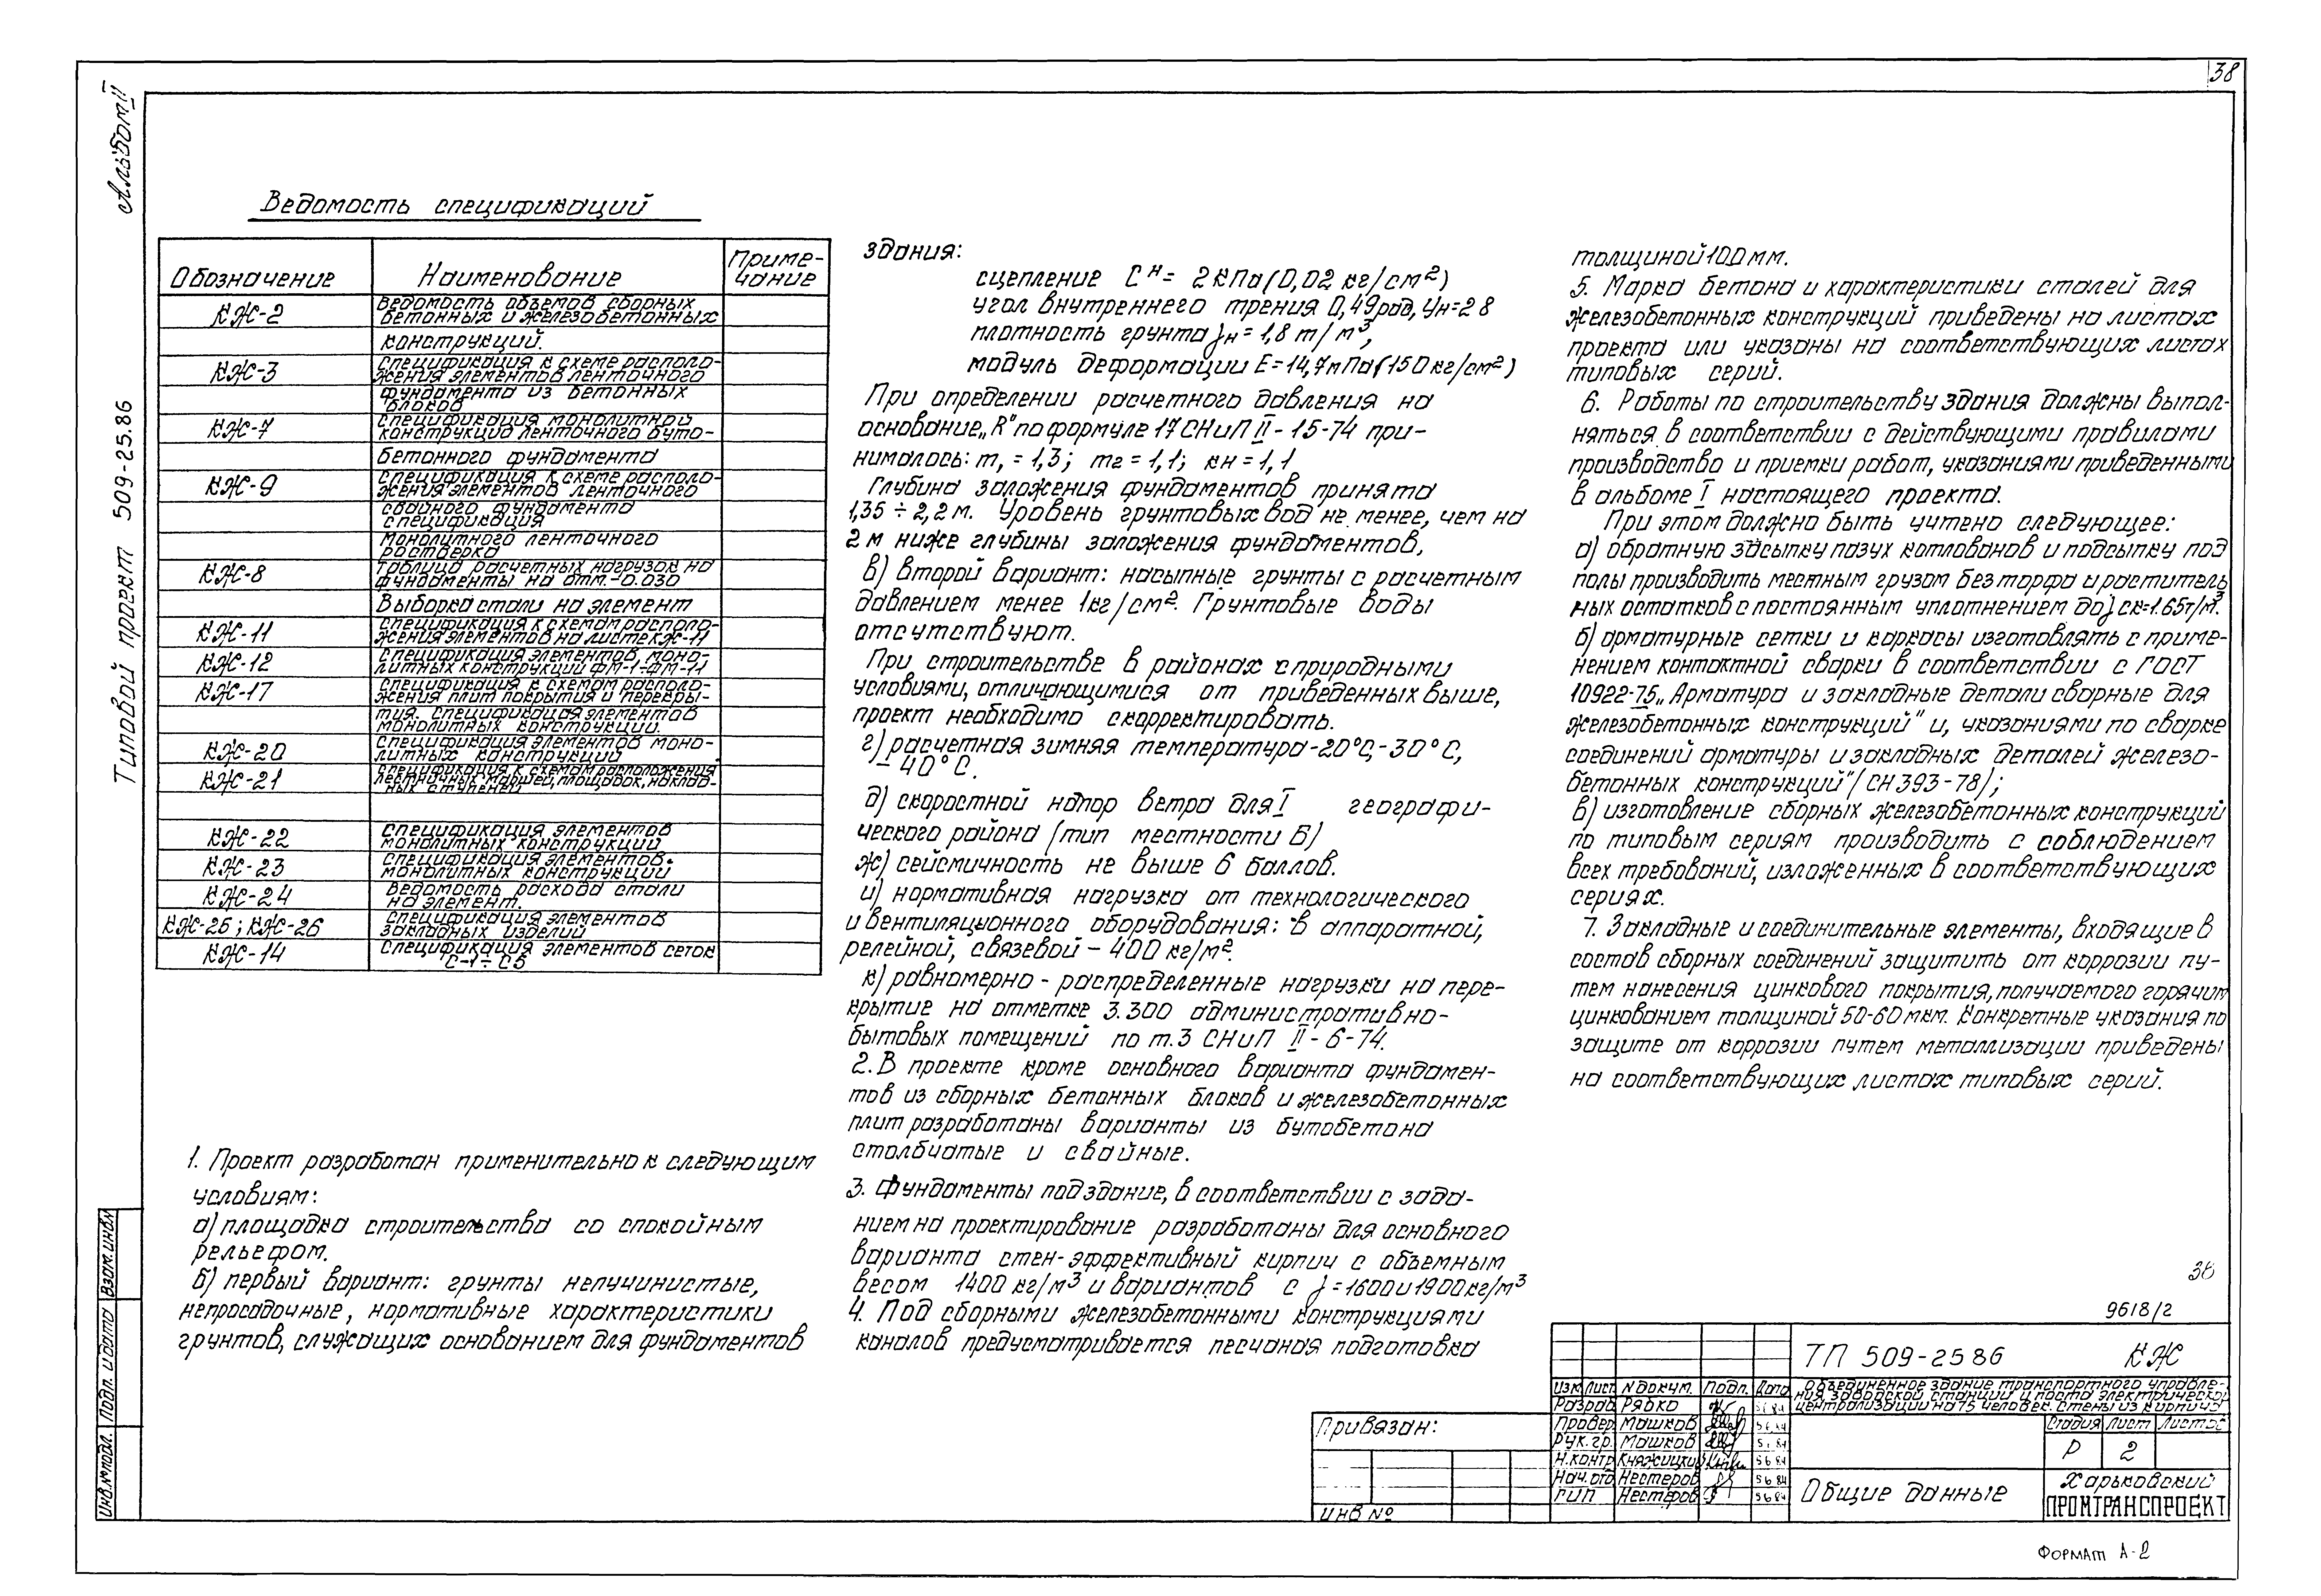 38
Альбом II
Типовой проект 509-25.86
Ведомость спецификаций
Обозначение Наименование Приме-
чание
КЖ-2 Ведомость объемов сборных
бетонных и железобетонных
конструкций.
КЖ-3 Спецификация к схеме располо-
жения элементов ленточного
фундамента из бетонных
блоков
КЖ-7 Спецификация монолитной
конструкции ленточного буто-
бетонного фундамента
КЖ-9 Спецификация к схеме располо-
жения элементов ленточного
свайного фундамента
спецификация
монолитного ленточного
ростверка
КЖ-8 Таблица расчетных нагрузок на
фундаменты на отм.-0.030
Выборка стали на элемент
КЖ-11 Спецификация к схемам располо-
жения элементов на листе КЖ-11
КЖ-12 Спецификация элементов моно-
литных конструкций ФМ-1÷ФМ-11
КЖ-17 Спецификация к схемам располо-
жения плит покрытия и перекры-
тия. Спецификация элементов
монолитных конструкций.
КЖ-20 Спецификация элементов моно-
литных конструкций
КЖ-21 Спецификация к схемам расположения
лестничных маршей, площадок, наклад-
ных ступеней
КЖ-22 Спецификация элементов
монолитных конструкций
КЖ-23 Спецификация элементов
монолитных конструкций
КЖ-24 Ведомость расхода стали
на элемент.
КЖ-25; КЖ-26 Спецификация элементов
закладных изделий
КЖ-14 Спецификация элементов сеток
С-1÷С5
1. Проект разработан применительно к следующим
условиям:
а) площадка строительства со спокойным
рельефом.
б) первый вариант: грунты непучинистые,
непросадочные, нормативные характеристики
грунтов, служащих основанием для фундаментов
здания:
сцепление Cᴴ= 2кПа (0,02 кг/см²)
угол внутреннего трения 0,49рад, φн=28
плотность грунта γн= 1,8 т/м³,
модуль деформации Е=14,7мПа(150кг/см²)
При определении расчетного давления на
основание „R" по формуле 17 СНиП II-15-74 при-
нималось: m₁=1,3; m₂=1,1; кн=1,1
Глубина заложения фундаментов принята
1,35÷2,2м. Уровень грунтовых вод не менее, чем на
2м ниже глубины заложения фундаментов,
в) второй вариант: насыпные грунты с расчетным
давлением менее 1кг/см². Грунтовые воды
отсутствуют.
При строительстве в районах с природными
условиями, отличающимися от приведенных выше,
проект необходимо скорректировать.
г) расчетная зимняя температура-20°С,-30°С,
-40°С.
д) скоростной напор ветра для I географи-
ческого района (тип местности Б)
ж) сейсмичность не выше 6 баллов.
и) нормативная нагрузка от технологического
и вентиляционного оборудования: в аппаратной,
релейной, связевой - 400 кг/м².
к) равномерно-распределенные нагрузки на пере-
крытие на отметке 3.300 административно-
бытовых помещений по т.3 СНиП II-6-74.
2. В проекте кроме основного варианта фундамен-
тов из сборных бетонных блоков и железобетонных
плит разработаны варианты из бутобетона
столбчатые и свайные.
3. Фундаменты под здание, в соответствии с зада-
нием на проектирование разработаны для основного
варианта стен-эффективный кирпич с объемным
весом 1400 кг/м³ и вариантов с γ=1600 и 1900кг/м³
4. Под сборными железобетонными конструкциями
каналов предусматривается песчаная подготовка
толщиной 100мм.
5. Марка бетона и характеристики сталей для
железобетонных конструкций приведены на листах
проекта или указаны на соответствующих листах
типовых серий.
6. Работы по строительству здания должны выпол-
няться в соответствии с действующими правилами
производства и приемки работ, указаниями приведенными
в альбоме I настоящего проекта.
При этом должно быть учтено следующее:
а) обратную засыпку пазух котлованов и подсыпку под
полы производить местным грузом без торфа и раститель
ных остатков с постоянным уплотнением до γск=1.65т/м³.
б) арматурные сетки и каркасы изготовлять с приме-
нением контактной сварки в соответствии с ГОСТ
10922-75 „Арматура и закладные детали сварные для
железобетонных конструкций" и, указаниями по сварке
соединений арматуры и закладных деталей железо-
бетонных конструкций"/СН 393-78/;
в) изготовление сборных железобетонных конструкций
по типовым сериям производить с соблюдением
всех требований, изложенных в соответствующих
сериях.
7. Закладные и соединительные элементы, входящие в
состав сборных соединений защитить от коррозии пу-
тем нанесения цинкового покрытия, получаемого горячим
цинкованием толщиной 50-60 мкм. Конкретные указания по
защите от коррозии путем металлизации приведены
на соответствующих листах типовых серий.
38
9618/2
ТП 509-2586 КЖ
Изм Лист N докум. Подп. Дата
Разраб Рябко 5.6.84
Провер Машков 5.6.84
Рук. гр. Машков 5.6.84
Н.контр Княжицкий 5.6.84
Нач. отд Нестеров 5.6.84
ГИП Нестеров 5.6.84
Объединенное здание транспортного управле-
ния заводской станции и поста электрической
централизации на 75 человек. Стены из кирпича
Стадия Лист Листов
Р 2
Общие данные
Харьковский
ПРОМТРАНСПРОЕКТ
Привязан:
ИНВ №
Инв.№ подл. Подп. и дата Взам. инв№
ФОРМАТ А-2